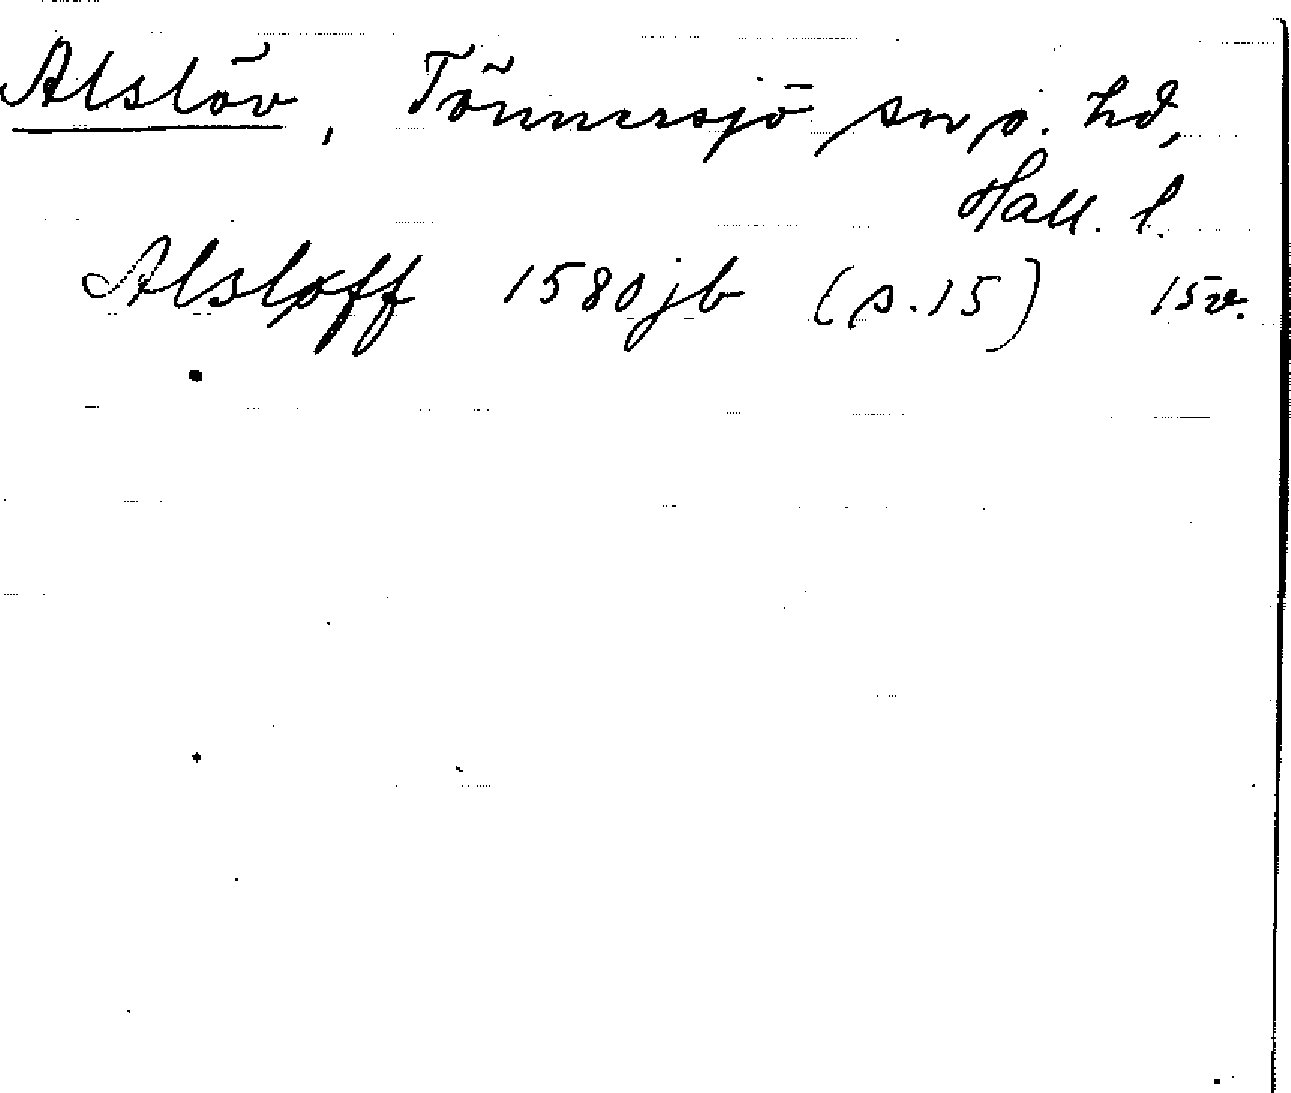 Alslöv, Tönnersjö sn o. hd,
Hall. l.
Alsløff 1580 jb (s. 15) 15v.